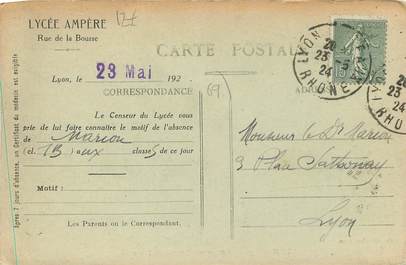 LYCÉE AMPÈRE
Rue de la Bourse
CARTE POSTALE
Lyon, le 23 Mai 192
CORRESPONDANCE
69
Le Censeur du Lycée vous
prie de lui faire connaître le motif de l'absence
de Marion
classe 5 de ce jour
Motif :
Les Parents ou le Correspondant.
Après 7 jours d'absence, un Certificat du médecin est exigible
Monsieur le Dr Marion
9 Place Sathonay
Lyon
LYON
RHONE
20
23 -5
24
15
20
23
24